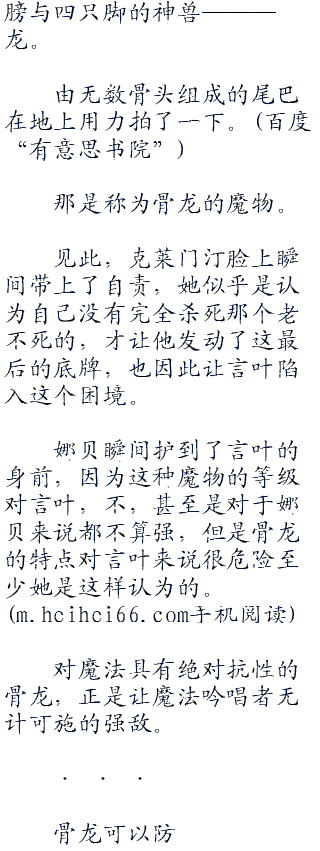 膀与四只脚的神兽————
龙。
由无数骨头组成的尾巴
在地上用力拍了一下。(百度
“有意思书院”)
那是称为骨龙的魔物。
见此，克莱门汀脸上瞬
间带上了自责，她似乎是认
为自己没有完全杀死那个老
不死的，才让他发动了这最
后的底牌，也因此让言叶陷
入这个困境。
娜贝瞬间护到了言叶的
身前，因为这种魔物的等级
对言叶，不，甚至是对于娜
贝来说都不算强，但是骨龙
的特点对言叶来说很危险至
少她是这样认为的。
(m.hcihci66.com手机阅读)
对魔法具有绝对抗性的
骨龙，正是让魔法吟唱者无
计可施的强敌。
． ． ．
骨龙可以防